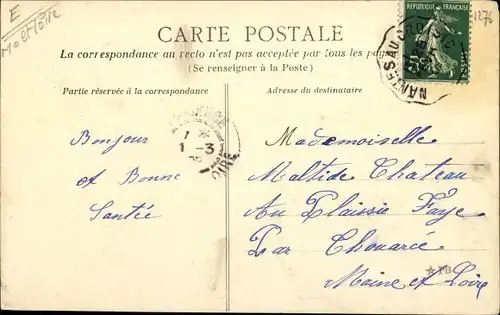 E
1276
RÉPUBLIQUE FRANÇAISE
CARTE POSTALE
La correspondance au recto n'est pas acceptée par tous les pays
(Se renseigner à la Poste)
Partie réservée à la correspondance
Adresse du destinataire
1 - 3
Bonjour
et Bonne
Santée
Mademoiselle
Maltide Chateau
Au Plaissie Faye
Par Thouarcé
Maine et Loire